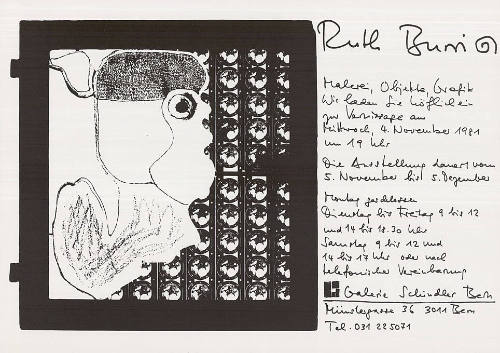 Ruth Burri
Malerei, Objekte, Grafik
Wir laden Sie höflich ein
zur Vernissage am
Mittwoch, 4. November 1981
um 19 Uhr
Die Ausstellung dauert vom
5. November bis 5. Dezember
Montag geschlossen
Dienstag bis Freitag 9 bis 12
und 14 bis 18.30 Uhr
Samstag 9 bis 12 und
14 bis 17 Uhr oder nach
telefonischer Vereinbarung
Galerie Schindler Bern
Münstergasse 36 3011 Bern
Tel. 031 225071